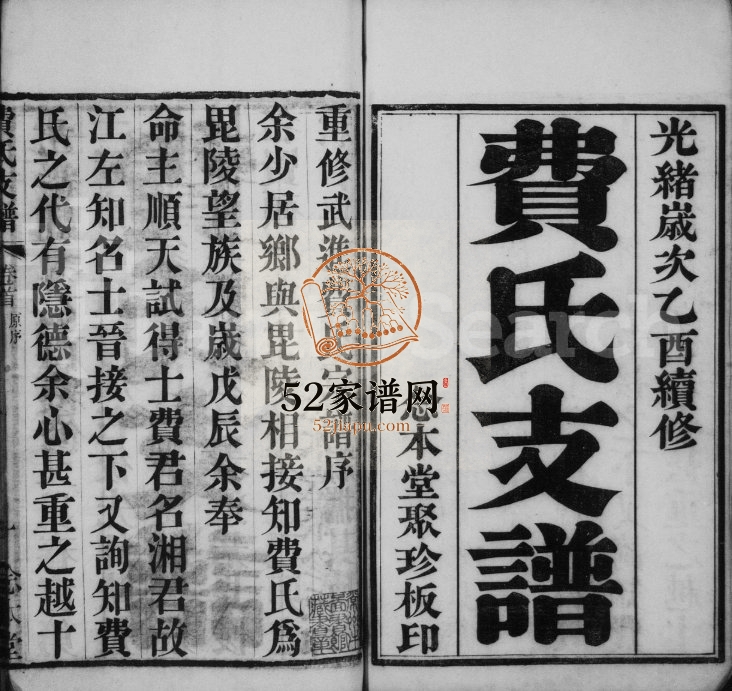 光緒歲次乙酉續修
費氏支譜
本堂聚珍板印
重修武進費氏宗譜序
余少居鄉與毘陵相接知費氏爲
毘陵望族及歲戊辰余奉
命主順天試得士費君名湘君故
江左知名士晉接之下又詢知費
氏之代有隱德余心甚重之越十
費氏支譜
卷首
原序
52家谱网